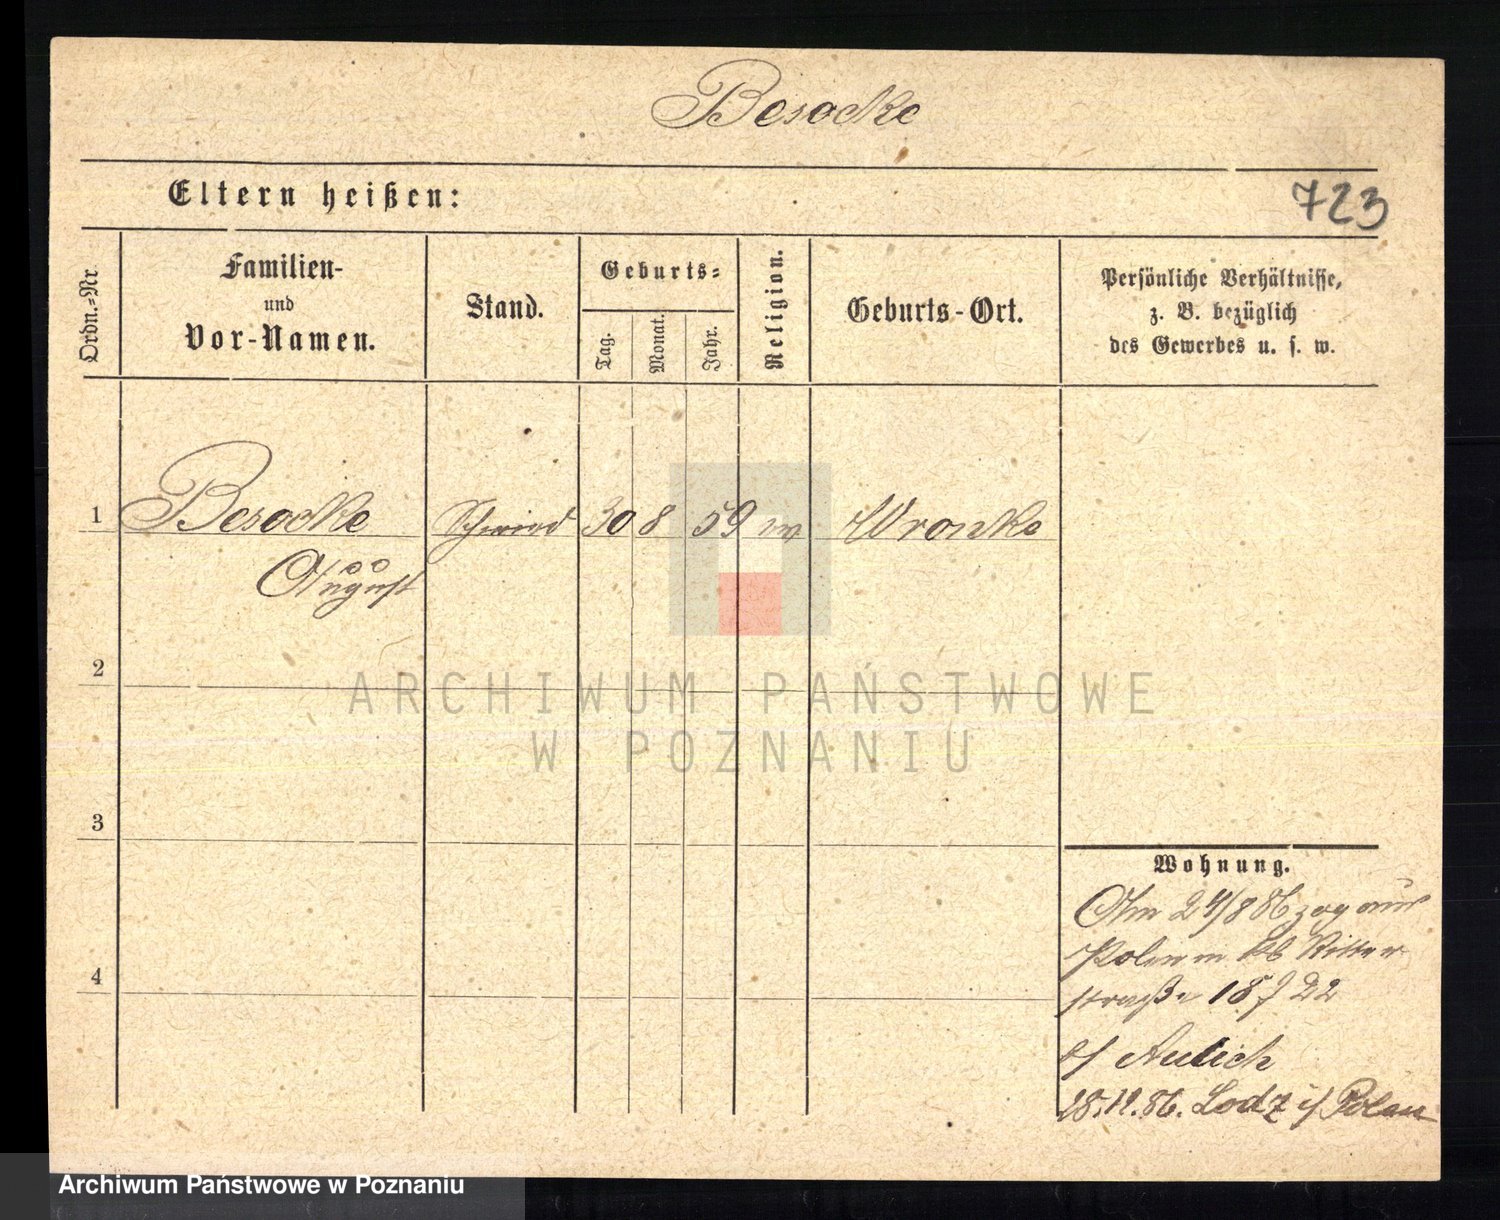 Besocke
Eltern heißen:
723
Ordn.-Nr.
Familien-
und
Vor-Namen.
Stand.
Geburts-
Tag.
Monat.
Jahr.
Religion.
Geburts-Ort.
Persönliche Verhältnisse,
z. B. bezüglich
des Gewerbes u. s. w.
1
Besocke
August
Schmied
30
8
59
Wronke
2
3
4
Wohnung.
Am 24/8 86 zog aus
Polen
Ritter
straße 18
22
b/ Aulich
28.12.86. Lodz i/ Polen
ARCHIWUM PAŃSTWOWE
W POZNANIU
Archiwum Państwowe w Poznaniu